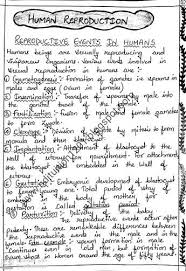 HUMAN REPRODUCTION
REPRODUCTIVE EVENTS IN HUMANS
Human beings are sexually reproducing and
viviparous organisms. Various events involved in
sexual reproduction in humans are:
① Gametogenesis: Formation of gametes ie sperms in
males and eggs (ovum in female)
② Insemination: Transfer of sperms by male into
the genital tract of the
③ Fertilisation: Fusion of male and female gametes
④ Cleavage: Division of by mitosis to form
⑤ Implantation: Attachment of blastocyst to the
wall of uterus for nourishment. For attachment
the blastocyst is embedded in the wall of
uterus
⑥ Gestation: Embryonic development of blastocyst
to young one. Total period of
embryo in the body of mother for
gestation is called
⑦ Parturition: Delivery of the baby
The Reproductive events occur after
puberty. There are remarkable differences between
the Reproductive events in the male and in the
female for example: sperm formation in male
continues even in old men but formation of
ovum stops in women around the age of fifty years